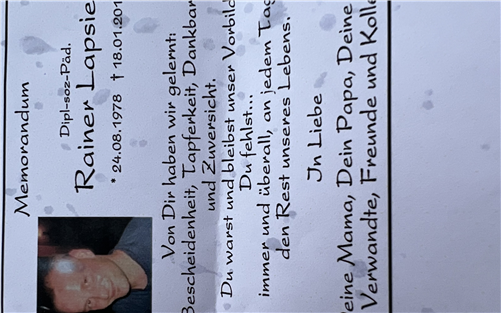 Memorandum
Dipl-soz-Päd.
Rainer Lapsie
* 24.08.1978 † 18.01.201
Von Dir haben wir gelernt:
Bescheidenheit, Tapferkeit, Dankbar
und Zuversicht.
Du warst und bleibst unser Vorbild
Du fehlst...
immer und überall, an jedem Tag
den Rest unseres Lebens.
In Liebe
eine Mama, Dein Papa, Deine
Verwandte, Freunde und Kolle